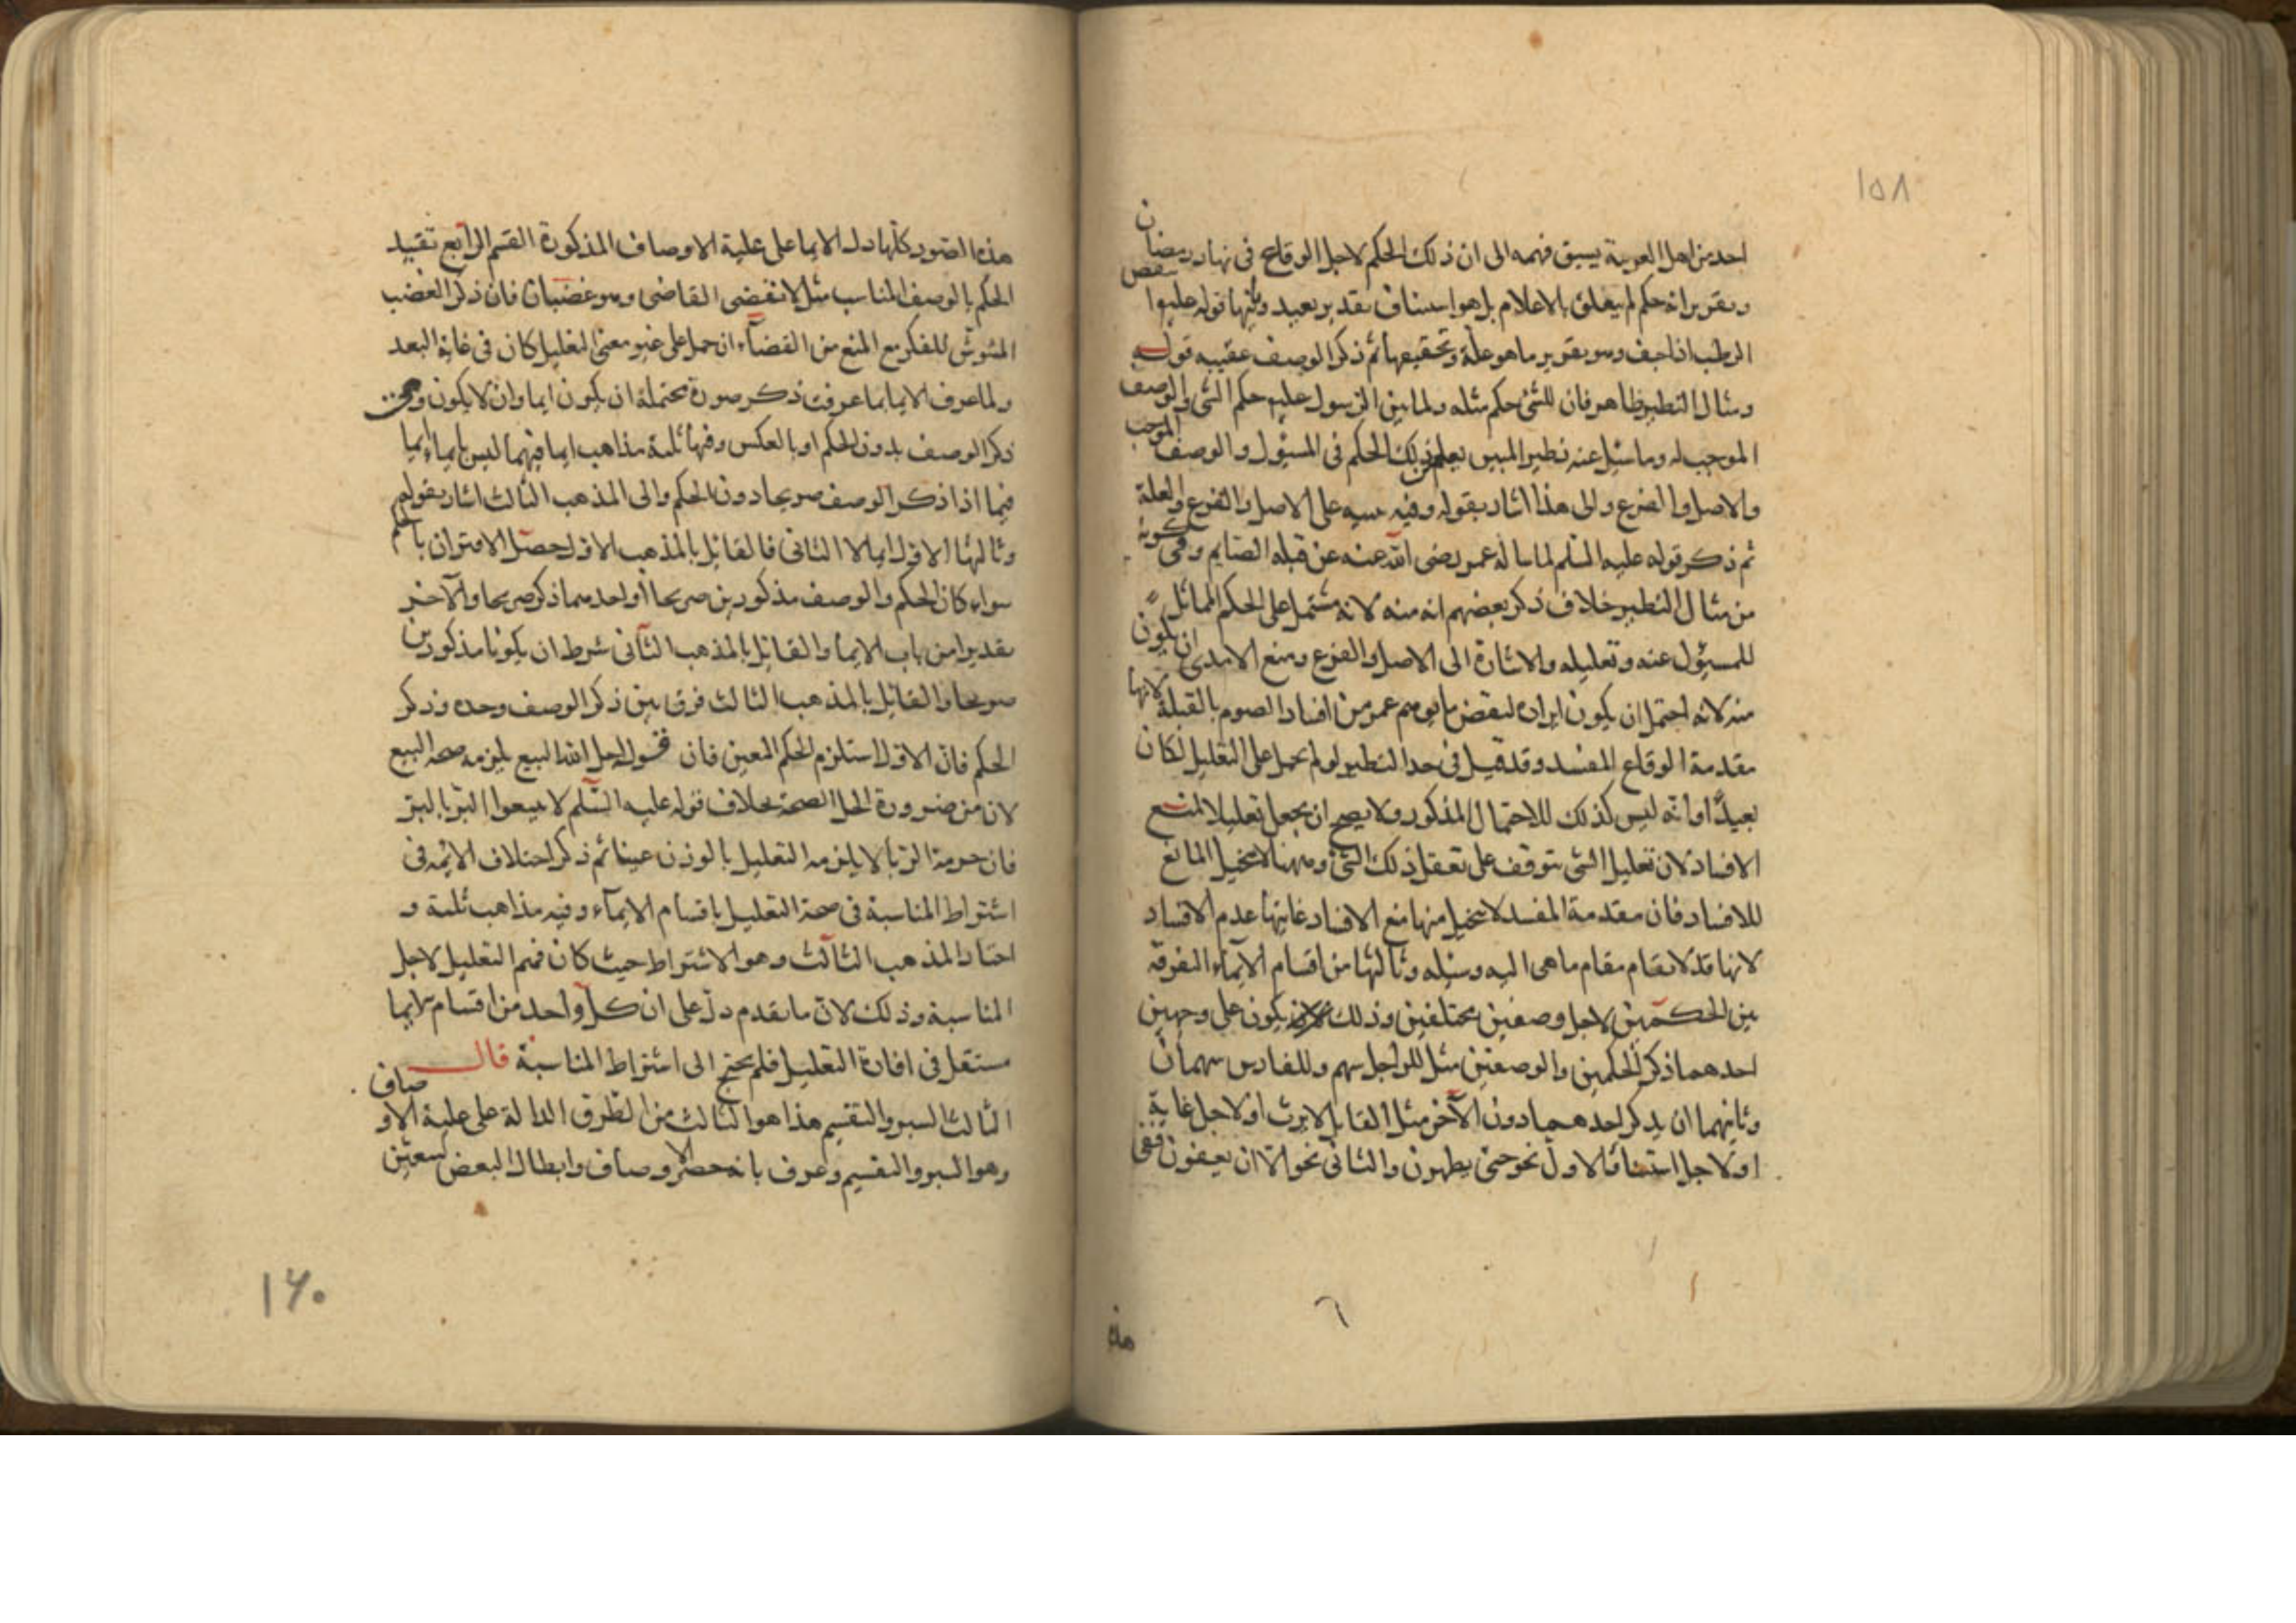 ١٥٨
احد من اهل العربية يسبق فهمه الى ان ذلك الحكم لاجل الوقاع فى نهار رمضان
وتقرير انه حكم لم يتعلق بالاعلام بل هو استيناف بقدير بعيد ومنها قوله عليه اينقص
الرطب اذا جف وهو بقرير ما هو علة وتحقيقها ثم ذكر الوصف عقيبه قوله
ومثال النظير ظاهر فان للشئ حكم مثله ولما بين الرسول عليه حكم الشئ والوصف
الموجب له وما سئل عنه نظير المبين يعلم ذلك الحكم فى المسئول والوصف الموجب
والاصل والفرع والى هذا اشار بقوله وفيه تنبيه على الاصل والفرع والعلة
ثم ذكر قوله عليه السلم لما ساله عمر رضى الله عنه عن قبلة الصايم وفى كونه
من مثال النظير خلاف ذكر بعضهم انه منه لانه مشتمل على الحكم المماثل
للمسئول عنه وتعليله والاشارة الى الاصل والفرع ومنع الامدى ان يكون
منه لانه احتمل ان يكون ايراده لنقض ما توهم عمر من افساد الصوم بالقبلة لانها
مقدمة الوقاع المفسد وقد قيل فى حد النظير لو لم يحمل على التعليل لكان
بعيدًا وانه ليس كذلك للاحتمال المذكور ولا يصح ان يجعل تعليلا لمنع
الافساد لان تعليل الشى يتوقف على تعقل ذلك الشئ وههنا لا يتخيل المانع
للافساد فان مقدمة المفسد لا يتخيل منها منع الافساد غايتها عدم الافساد
لانها قد لا يقام مقام ما هى اليه وسيلة وثالثها من اقسام الايماء التفرقة
بين الحكمين لاجل وصفين مختلفين وذلك يكون على وجهين
احدهما ذكر الحكمين والوصفين مثل للراجل سهم وللفارس سهمان
وثانيهما ان يذكر احدهما دون الآخر مثل القاتل لا يرث او لاجل غاية
او لاجل استثنا فالاول نحو حتى يطهرن والثانى نحو الا ان يعفون ففى
هذه
هذه الصور كلها دل الايما على علية الاوصاف المذكورة القسم الرابع تقييد
الحكم بالوصف المناسب مثل لا يقضى القاضى وهو غضبان فان ذكر الغضب
المشوش للفكر مع المنع من القضآء ان حمل على غير معنى التعليل كان فى غاية البعد
ولما عرف الايما بما عرفت ذكر صورة محتملة ان يكون ايما وان لا يكون وهى
ذكر الوصف بدون الحكم او بالعكس وفيها ثلثة مذاهب ايما فيهما ليس بايماء ايما
فيما اذا ذكر الوصف صريحا دون الحكم والى المذهب الثالث اشار بقوله
وثالثها الاول ايما لا الثانى فالقائل بالمذهب الاول حصل الاقتران بالحكم
سواء كان الحكم والوصف مذكورين صريحا او احدهما ذكر صريحا والآخر
تقديرا من باب الايما والقائل بالمذهب الثانى شرط ان يكونا مذكورين
صريحا والقائل بالمذهب الثالث فرق بين ذكر الوصف وحده وذكر
الحكم فان الاول استلزم الحكم المعين فان قوله احل الله البيع يلزمه صحة البيع
لان من ضرورة الحل الصحة بخلاف قوله عليه السلم لا تبيعوا البر بالبر
فان حرمة الربا لا يلزمه التعليل بالوزن عينا ثم ذكر اختلاف الائمة فى
اشتراط المناسبة فى صحة التعليل باقسام الايمآء وفيه مذاهب ثلثة و
اختار المذهب الثالث وهو الاشتراط حيث كان فهم التعليل لاجل
المناسبة وذلك لان ما تقدم دل على ان كل واحد من اقسام الايما
مستقل فى افادة التعليل فلم يحتج الى اشتراط المناسبة قال
الثالث السبر والتقسيم هذا هو الثالث من الطرق الدالة على علية الاوصاف
وهو السبر والتقسيم وعرف بانه حصر الاوصاف وابطال البعض لتعين
١٦٠